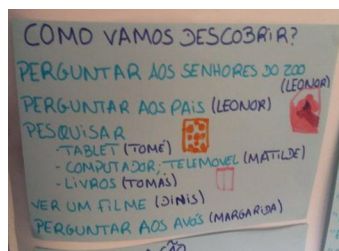 COMO VAMOS DESCOBRIR?
PERGUNTAR AOS SENHORES DO ZOO
(LEONOR)
PERGUNTAR AOS PAIS (LEONOR)
PESQUISAR
- TABLET (TOMÉ)
- COMPUTADOR, TELEMOVEL (MATILDE)
- LIVROS (TOMÁS)
VER UM FILME (DINIS)
PERGUNTAR AOS AVÓS (MARGARIDA)